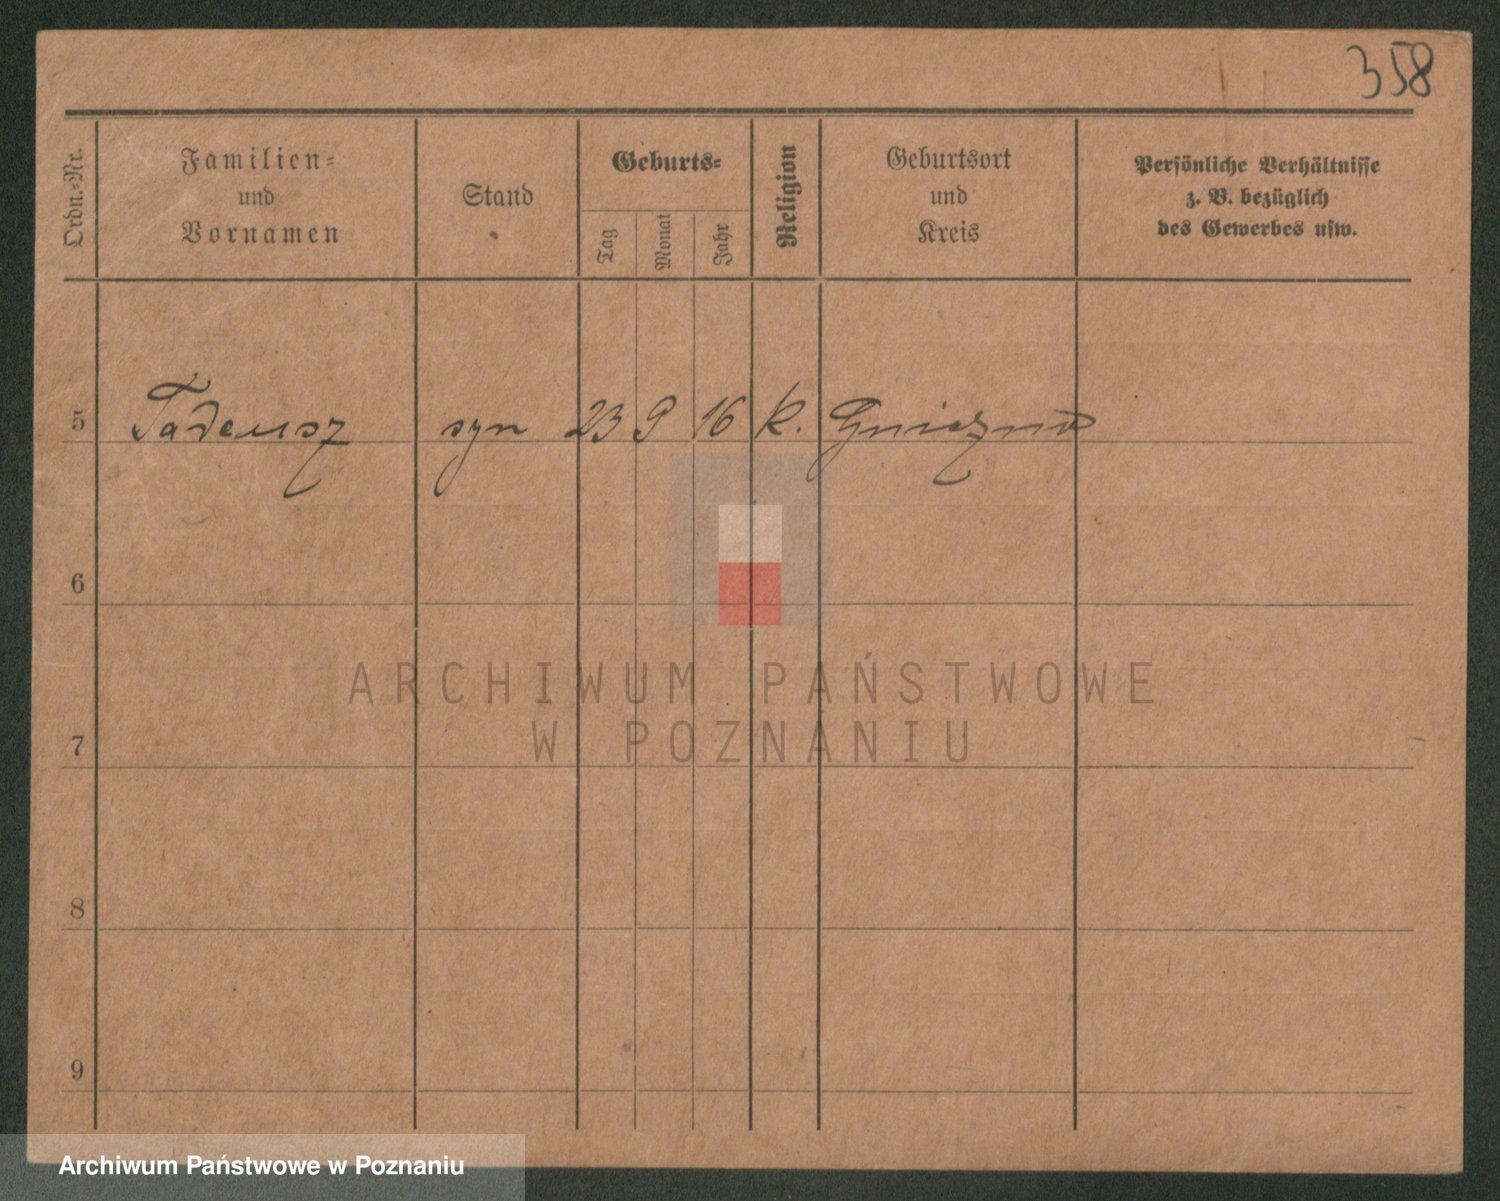 358
Ordn.-Nr.
Familien-
und
Vornamen
Stand
Geburts-
Tag
Monat
Jahr
Religion
Geburtsort
und
Kreis
Persönliche Verhältnisse
z. B. bezüglich
des Gewerbes usw.
5 Tadeusz syn 23 9 16 k. Gniezno
6
7
8
9
ARCHIWUM PAŃSTWOWE
W POZNANIU
Archiwum Państwowe w Poznaniu